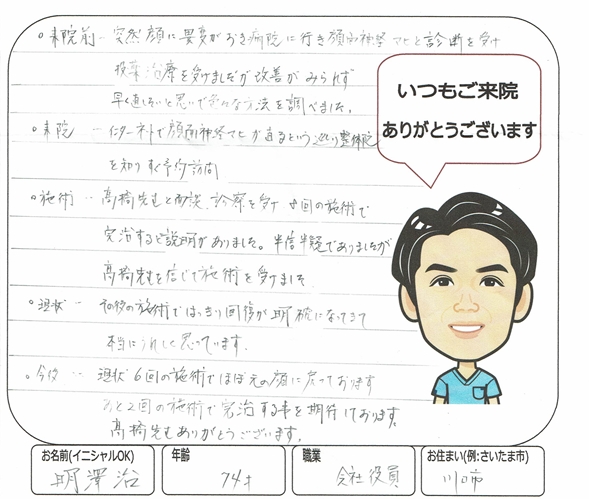 ○来院前 ─ 突然顔に異変がおき病院に行き顔面神経マヒと診断を受け
投薬治療を受けましたが改善がみられず
早く直したいと思い色々な方法を調べました。
○来院 ─ インターネットで顔面神経マヒが直るという 整体院
を知りすぐ予約訪問
○施術 ‥ 高橋先生と面談、診察を受け 8回の施術で
完治すると説明がありました。半信半疑でありましたが
高橋先生を信じて施術を受けました
○現状 ‥ の施術ではっきり回復が明確になってきて
本当にうれしく思っています。
○今後 ‥ 現状6回の施術でほぼ元の顔に戻っております
あと2回の施術で完治する事を期待しております。
高橋先生ありがとうございます。
いつもご来院
ありがとうございます
お名前(イニシャルOK) 年齢 職業 お住まい(例:さいたま市)
明澤治 74才 会社役員 川口市